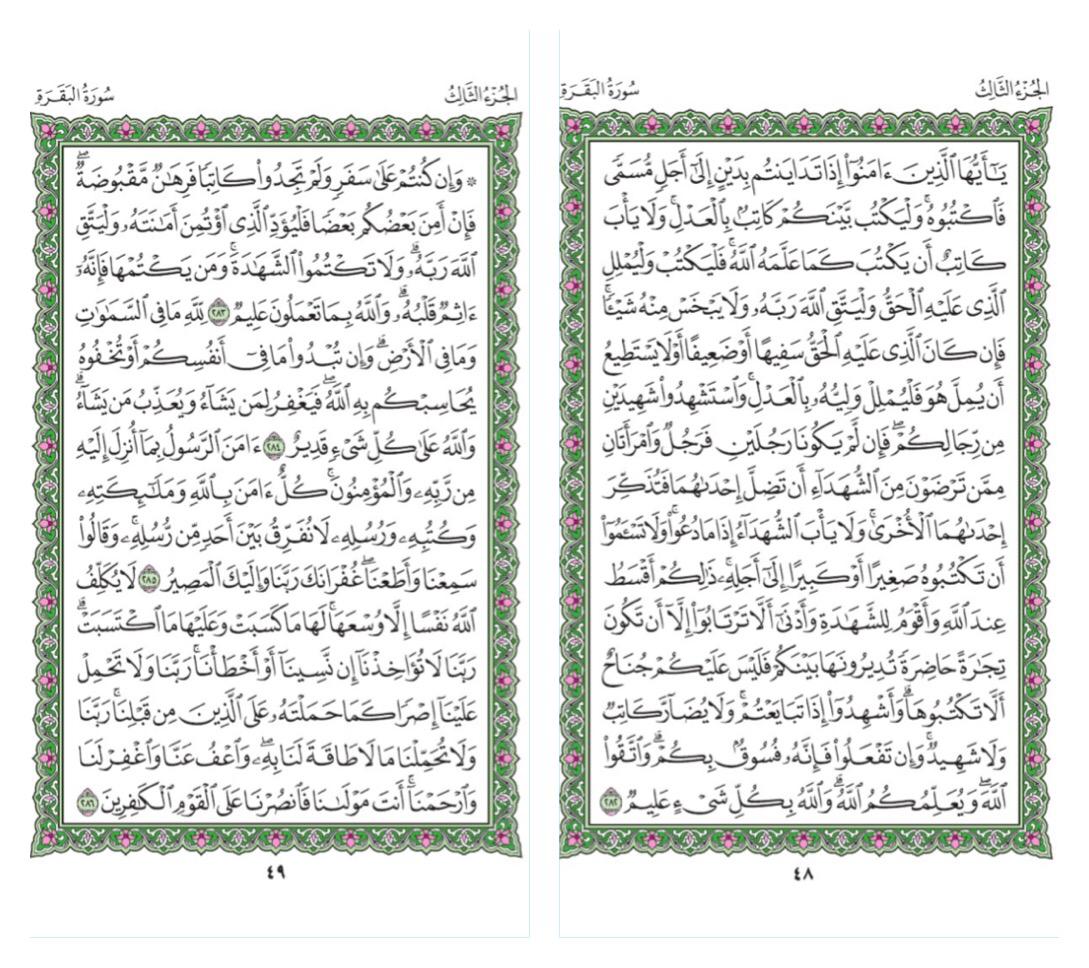 الجزء الثالث
سورة البقرة
يَٰٓأَيُّهَا ٱلَّذِينَ ءَامَنُوٓاْ إِذَا تَدَايَنتُم بِدَيۡنٍ إِلَىٰٓ أَجَلٖ مُّسَمّٗى
فَٱكۡتُبُوهُۚ وَلۡيَكۡتُب بَّيۡنَكُمۡ كَاتِبُۢ بِٱلۡعَدۡلِۚ وَلَا يَأۡبَ
كَاتِبٌ أَن يَكۡتُبَ كَمَا عَلَّمَهُ ٱللَّهُۚ فَلۡيَكۡتُبۡ وَلۡيُمۡلِلِ
ٱلَّذِي عَلَيۡهِ ٱلۡحَقُّ وَلۡيَتَّقِ ٱللَّهَ رَبَّهُۥ وَلَا يَبۡخَسۡ مِنۡهُ شَيۡـٔٗاۚ
فَإِن كَانَ ٱلَّذِي عَلَيۡهِ ٱلۡحَقُّ سَفِيهًا أَوۡ ضَعِيفًا أَوۡ لَا يَسۡتَطِيعُ
أَن يُمِلَّ هُوَ فَلۡيُمۡلِلۡ وَلِيُّهُۥ بِٱلۡعَدۡلِۚ وَٱسۡتَشۡهِدُواْ شَهِيدَيۡنِ
مِن رِّجَالِكُمۡۖ فَإِن لَّمۡ يَكُونَا رَجُلَيۡنِ فَرَجُلٞ وَٱمۡرَأَتَانِ
مِمَّن تَرۡضَوۡنَ مِنَ ٱلشُّهَدَآءِ أَن تَضِلَّ إِحۡدَىٰهُمَا فَتُذَكِّرَ
إِحۡدَىٰهُمَا ٱلۡأُخۡرَىٰۚ وَلَا يَأۡبَ ٱلشُّهَدَآءُ إِذَا مَا دُعُواْۚ وَلَا تَسۡـَٔمُوٓاْ
أَن تَكۡتُبُوهُ صَغِيرًا أَوۡ كَبِيرًا إِلَىٰٓ أَجَلِهِۦۚ ذَٰلِكُمۡ أَقۡسَطُ
عِندَ ٱللَّهِ وَأَقۡوَمُ لِلشَّهَٰدَةِ وَأَدۡنَىٰٓ أَلَّا تَرۡتَابُوٓاْ إِلَّآ أَن تَكُونَ
تِجَٰرَةً حَاضِرَةٗ تُدِيرُونَهَا بَيۡنَكُمۡ فَلَيۡسَ عَلَيۡكُمۡ جُنَاحٌ
أَلَّا تَكۡتُبُوهَاۗ وَأَشۡهِدُوٓاْ إِذَا تَبَايَعۡتُمۡۚ وَلَا يُضَآرَّ كَاتِبٞ
وَلَا شَهِيدٞۚ وَإِن تَفۡعَلُواْ فَإِنَّهُۥ فُسُوقُۢ بِكُمۡۗ وَٱتَّقُواْ
ٱللَّهَۖ وَيُعَلِّمُكُمُ ٱللَّهُۗ وَٱللَّهُ بِكُلِّ شَيۡءٍ عَلِيمٞ ٢٨٢
٤٨
الجزء الثالث
سورة البقرة
۞ وَإِن كُنتُمۡ عَلَىٰ سَفَرٖ وَلَمۡ تَجِدُواْ كَاتِبٗا فَرِهَٰنٞ مَّقۡبُوضَةٞۖ
فَإِنۡ أَمِنَ بَعۡضُكُم بَعۡضٗا فَلۡيُؤَدِّ ٱلَّذِي ٱؤۡتُمِنَ أَمَٰنَتَهُۥ وَلۡيَتَّقِ
ٱللَّهَ رَبَّهُۥۗ وَلَا تَكۡتُمُواْ ٱلشَّهَٰدَةَۚ وَمَن يَكۡتُمۡهَا فَإِنَّهُۥٓ
ءَاثِمٞ قَلۡبُهُۥۗ وَٱللَّهُ بِمَا تَعۡمَلُونَ عَلِيمٞ ٢٨٣ لِّلَّهِ مَا فِي ٱلسَّمَٰوَٰتِ
وَمَا فِي ٱلۡأَرۡضِۗ وَإِن تُبۡدُواْ مَا فِيٓ أَنفُسِكُمۡ أَوۡ تُخۡفُوهُ
يُحَاسِبۡكُم بِهِ ٱللَّهُۖ فَيَغۡفِرُ لِمَن يَشَآءُ وَيُعَذِّبُ مَن يَشَآءُۗ
وَٱللَّهُ عَلَىٰ كُلِّ شَيۡءٖ قَدِيرٌ ٢٨٤ ءَامَنَ ٱلرَّسُولُ بِمَآ أُنزِلَ إِلَيۡهِ
مِن رَّبِّهِۦ وَٱلۡمُؤۡمِنُونَۚ كُلٌّ ءَامَنَ بِٱللَّهِ وَمَلَٰٓئِكَتِهِۦ
وَكُتُبِهِۦ وَرُسُلِهِۦ لَا نُفَرِّقُ بَيۡنَ أَحَدٖ مِّن رُّسُلِهِۦۚ وَقَالُواْ
سَمِعۡنَا وَأَطَعۡنَاۖ غُفۡرَانَكَ رَبَّنَا وَإِلَيۡكَ ٱلۡمَصِيرُ ٢٨٥ لَا يُكَلِّفُ
ٱللَّهُ نَفۡسًا إِلَّا وُسۡعَهَاۚ لَهَا مَا كَسَبَتۡ وَعَلَيۡهَا مَا ٱكۡتَسَبَتۡۗ
رَبَّنَا لَا تُؤَاخِذۡنَآ إِن نَّسِينَآ أَوۡ أَخۡطَأۡنَاۚ رَبَّنَا وَلَا تَحۡمِلۡ
عَلَيۡنَآ إِصۡرٗا كَمَا حَمَلۡتَهُۥ عَلَى ٱلَّذِينَ مِن قَبۡلِنَاۚ رَبَّنَا
وَلَا تُحَمِّلۡنَا مَا لَا طَاقَةَ لَنَا بِهِۦۖ وَٱعۡفُ عَنَّا وَٱغۡفِرۡ لَنَا
وَٱرۡحَمۡنَآۚ أَنتَ مَوۡلَىٰنَا فَٱنصُرۡنَا عَلَى ٱلۡقَوۡمِ ٱلۡكَٰفِرِينَ ٢٨٦
٤٩